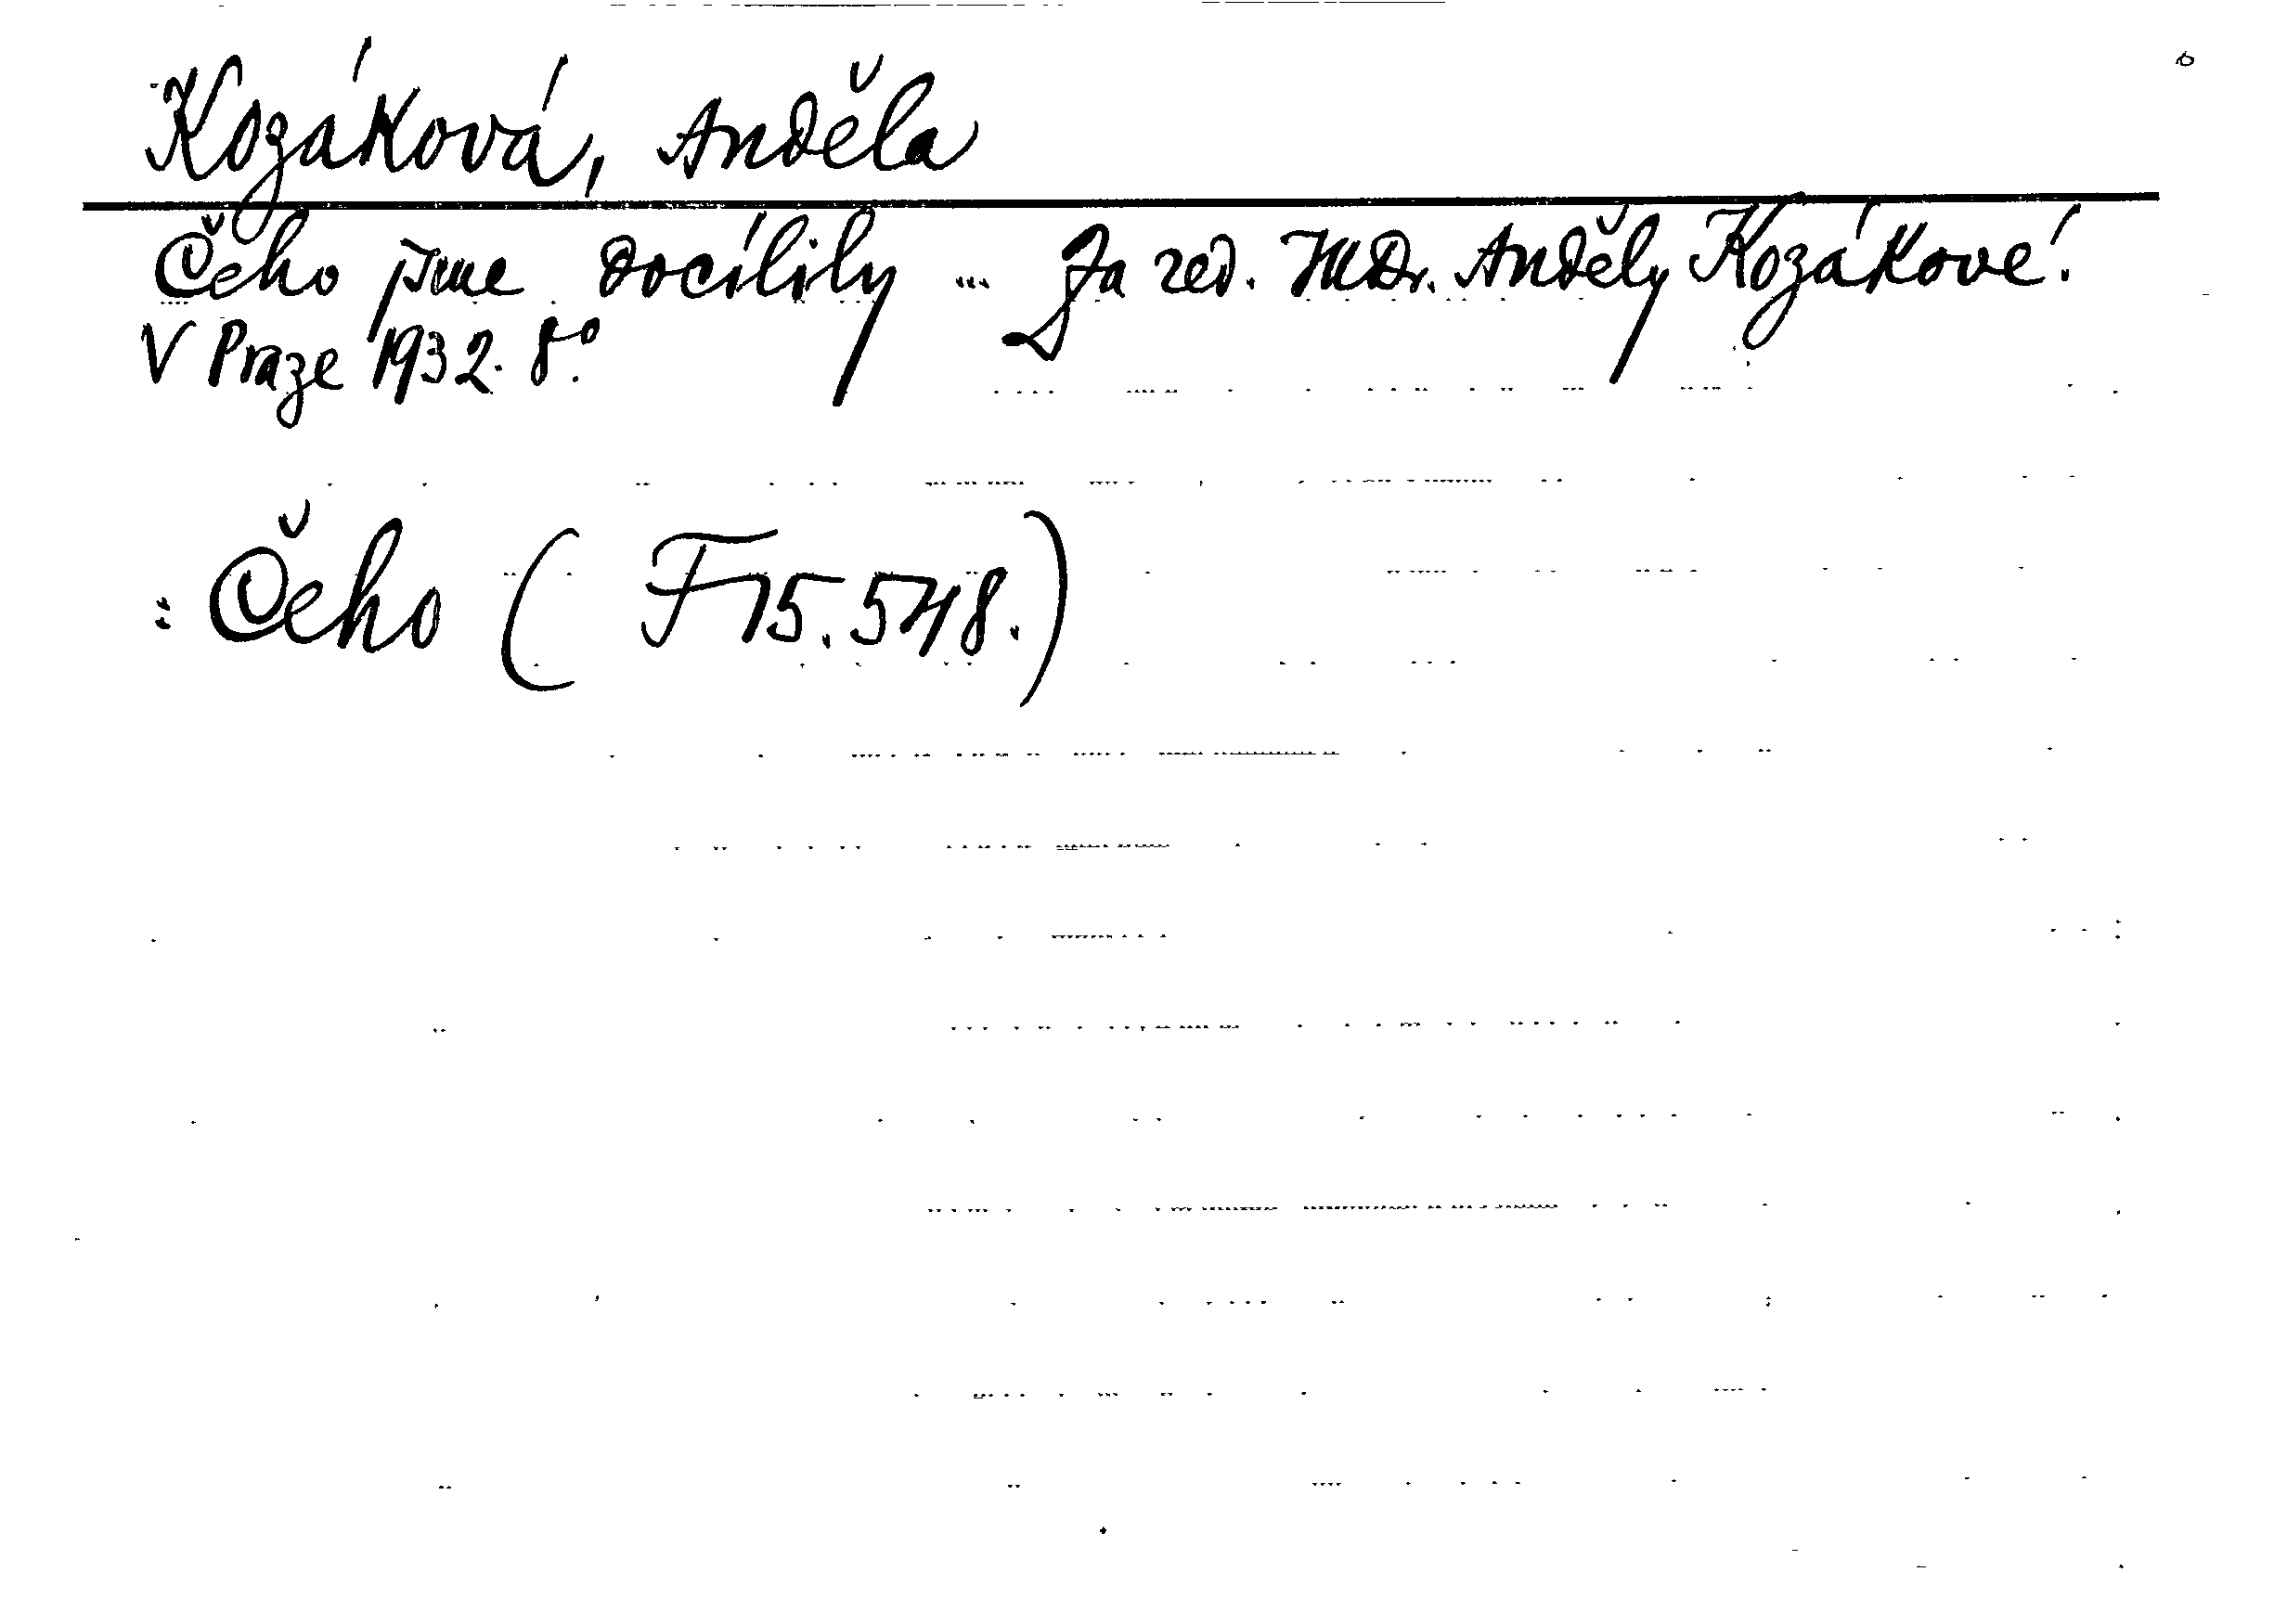 Kozáková, Anděla
Čeho jsme docílily ... Za red. JUDr. Anděly Kozákové.
V Praze 1932. 8°.
: Čeho ( F 15.548.)